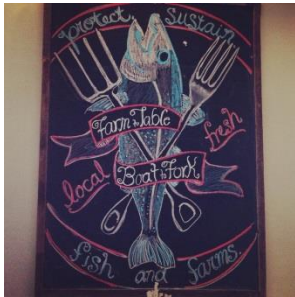 protect Sustain
Farm to Table
fresh
local
Boat to Fork
fish and farms.